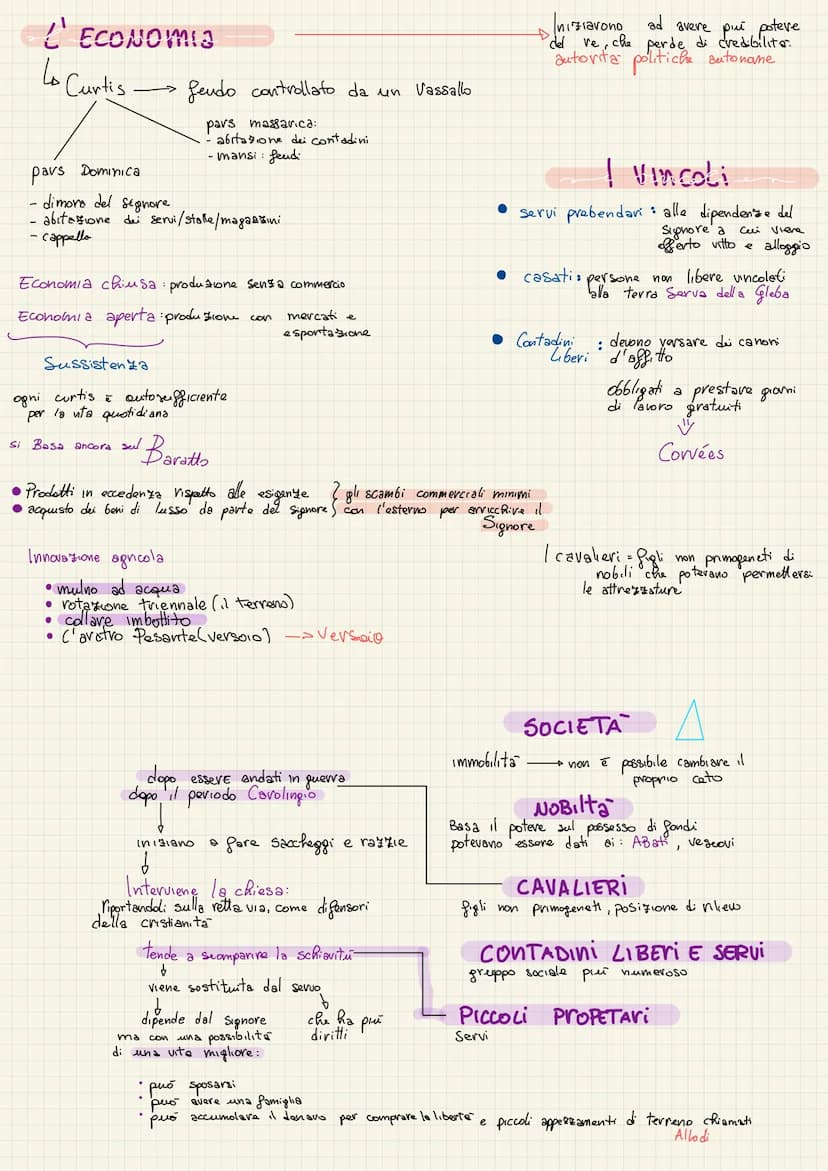 L'ECONOMIA
Iniziavono ad avere piú potere
del re, che perde di credibilità.
autorità politiche autonome
Curtis → feudo controllato da un Vassallo
pars massarica:
- abitazione dei contadini
- mansi: feudi
pars Dominica
- dimora del Signore
- abitazione dei servi/stalle/magazzini
- cappella
I VINCOLI
• servi prebendari: alla dipendenze del
Signore a cui viene
offerto vitto e alloggio
• casati: persone non libere vincolati
alla terra Servo della Gleba
• Contadini : devono versare dei canoni
Liberi d'affitto
obbligati a prestare giorni
di lavoro gratuiti
⇓
Corvées
Economia chiusa: produzione senza commercio
Economia aperta: produzione con mercati e
esportazione
Sussistenza
ogni curtis è autosufficiente
per la vita quotidiana
si Basa ancora sul Baratto
• Prodotti in eccedenza rispetto alle esigenze } gli scambi commerciali minimi
• acquisto dei beni di lusso da parte del signore } con l'esterno per arricchire il
Signore
Innovazione agricola
• mulno ad acqua
• rotazione triennale (il terreno)
• collare imbottito
• L'aratro Pesante (versoio) -> Versoio
I cavalieri = figli non primogeneti di
nobili che potevano permettersi
le attrezzature
SOCIETÀ
immobilità → non è possibile cambiare il
proprio ceto
NOBILTà
Basa il potere sul possesso di fondi
potevano essere dati ai: Abati, vescovi
CAVALIERI
figli non primogeneti, posizione di rilievo
CONTADINI LIBERI E SERVI
gruppo sociale piú numeroso
PICCOLI PROPETARI
Servi
dopo essere andati in guerra
dopo il periodo Carolingio
iniziano a fare saccheggi e razzie
Interviene la chiesa:
riportandoli sulla retta via, come difensori
della cristianità
tende a scomparire la schiavitú
viene sostituita dal servo
dipende dal Signore che ha piú
ma con una possibilità diritti
di una vita migliore:
• puó sposarsi
• puó avere una famiglia
• puó accumulare il denaro per comprare la libertà e piccoli appezzamenti di terreno chiamati
Allodi